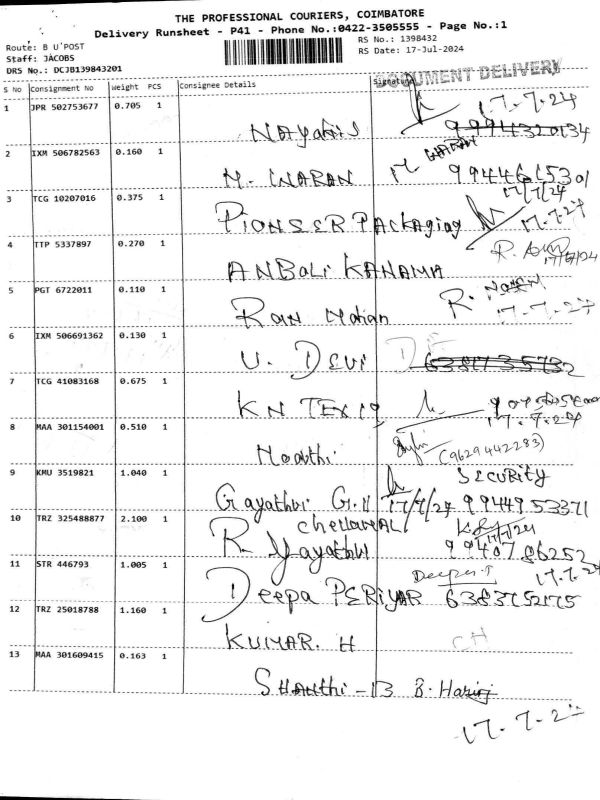 THE PROFESSIONAL COURIERS, COIMBATORE
Delivery Runsheet - P41 - Phone No.:0422-3505555 - Page No.:1
Route: B U'POST
RS No.: 1398432
Staff: JACOBS
RS Date: 17-Jul-2024
DRS No.: DCJB139843201
DOCUMENT DELIVERY
S No Consignment No Weight PCS Consignee Details Signature
1 JPR 502753677 0.705 1
17-7-24
9994320134
2 IXM 506782563 0.160 1
M. 
9944615301
17/7/24
3 TCG 10207016 0.375 1
PIONEER Packaging
17-7-24
4 TTP 5337897 0.270 1
ANBALI KANAMA R.
17/7/24
5 PGT 6722011 0.110 1
Ram Mohan R.
17-7-24
6 IXM 506691362 0.130 1
U. DEVI
7 TCG 41083168 0.675 1
KN TEX
17-7-24
8 MAA 301154001 0.510 1
(9629442283)
9 KMU 3519821 1.040 1
SECURITY
Gayathri G.H 17/7/24 9944953371
10 TRZ 325488877 2.100 1
17/7/24
R. 9940786252
11 STR 446793 1.005 1
17.7.24
Deepa PERIYAR 6383752175
12 TRZ 25018788 1.160 1
KUMAR. H CH
13 MAA 301609415 0.163 1
Shanthi - B B.
17-7-24